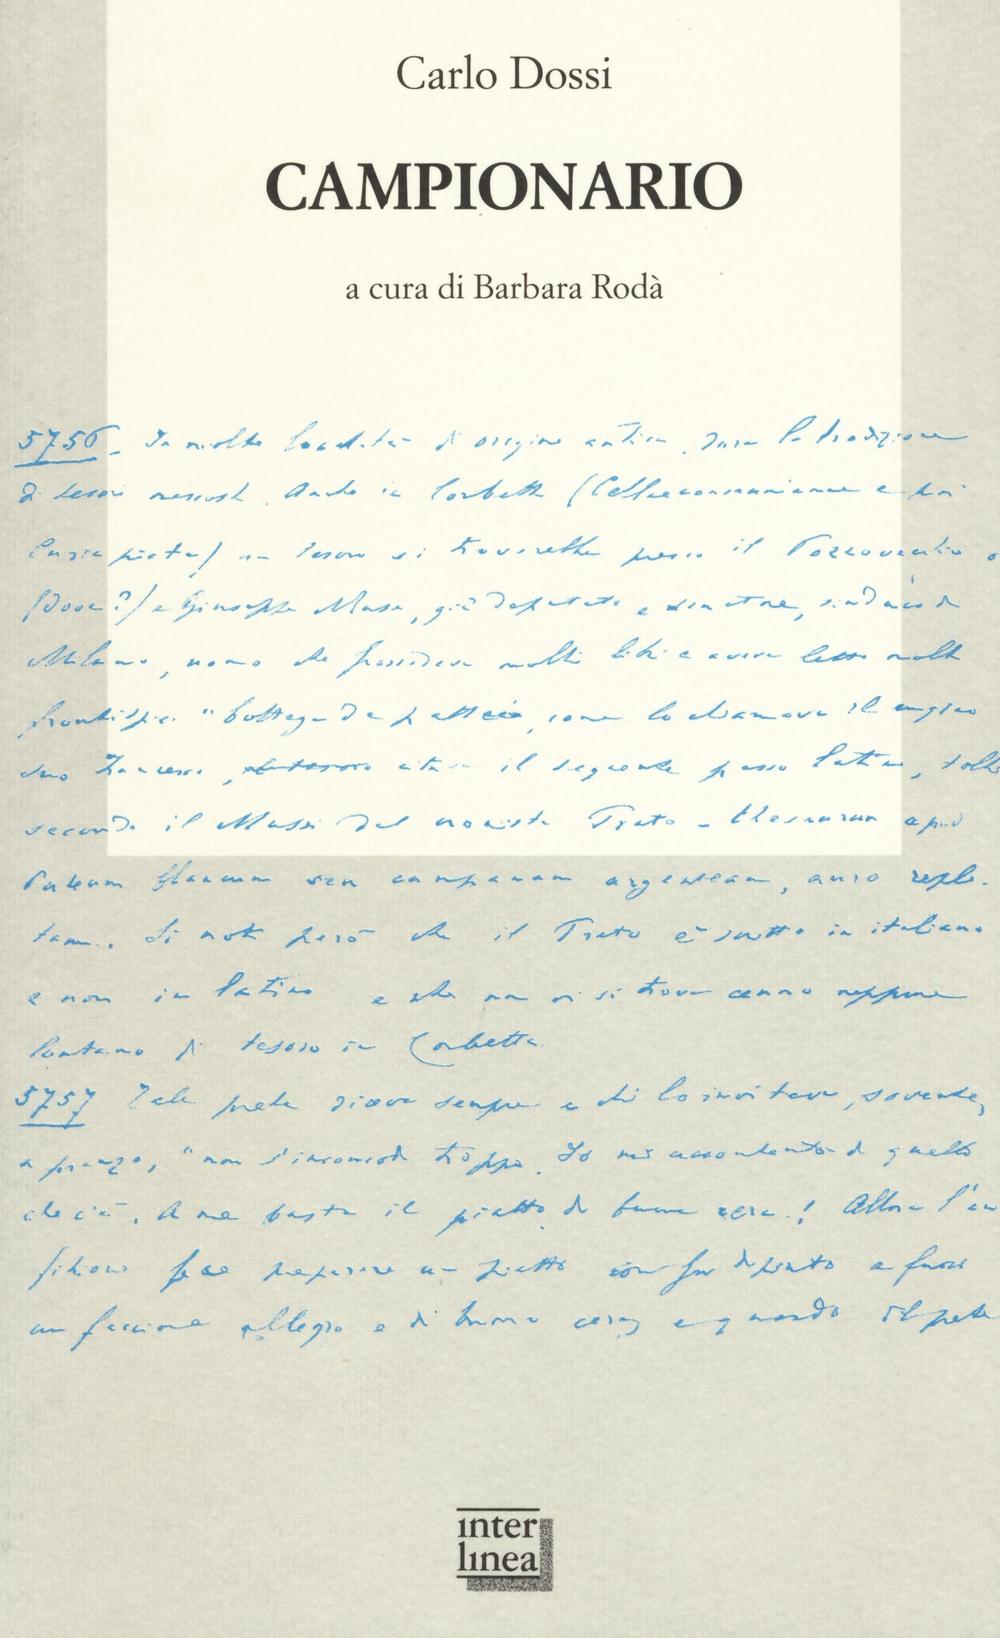 Carlo Dossi
CAMPIONARIO
a cura di Barbara Rodà
5756. In molte località di origine antica dura la tradizione
di tesori nascosti. Anche in Corbetta (
) un tesoro si troverebbe presso il Pozzovecchio
(dove?) e Giuseppe Mussi, già deputato e senatore, sindaco di
Milano, uomo che possedeva molti libri e aveva letto molti
frontispizi "bottega da , come lo chiamava il
suo , il seguente passo latino,
secondo il Mussi dal cronista Trato - thesaurum apud
Puteum seu campanam argenteam, auro reple-
tam. Si noti però che il Trato è scritto in italiano
e non in latino e che non vi si trova cenno neppure
lontano di tesoro in Corbetta.
5757 Tale prete diceva sempre a chi lo invitava, sovente,
a pranzo, "non s'incomodi troppo. Io mi accontento di quello
che c'è. A me basta il piatto di buona cera! Allora l'an
fitrione fece preparare un piatto con su dipinto a fuoco
un faccione allegro e di buona cera, e quando il prete
inter
linea